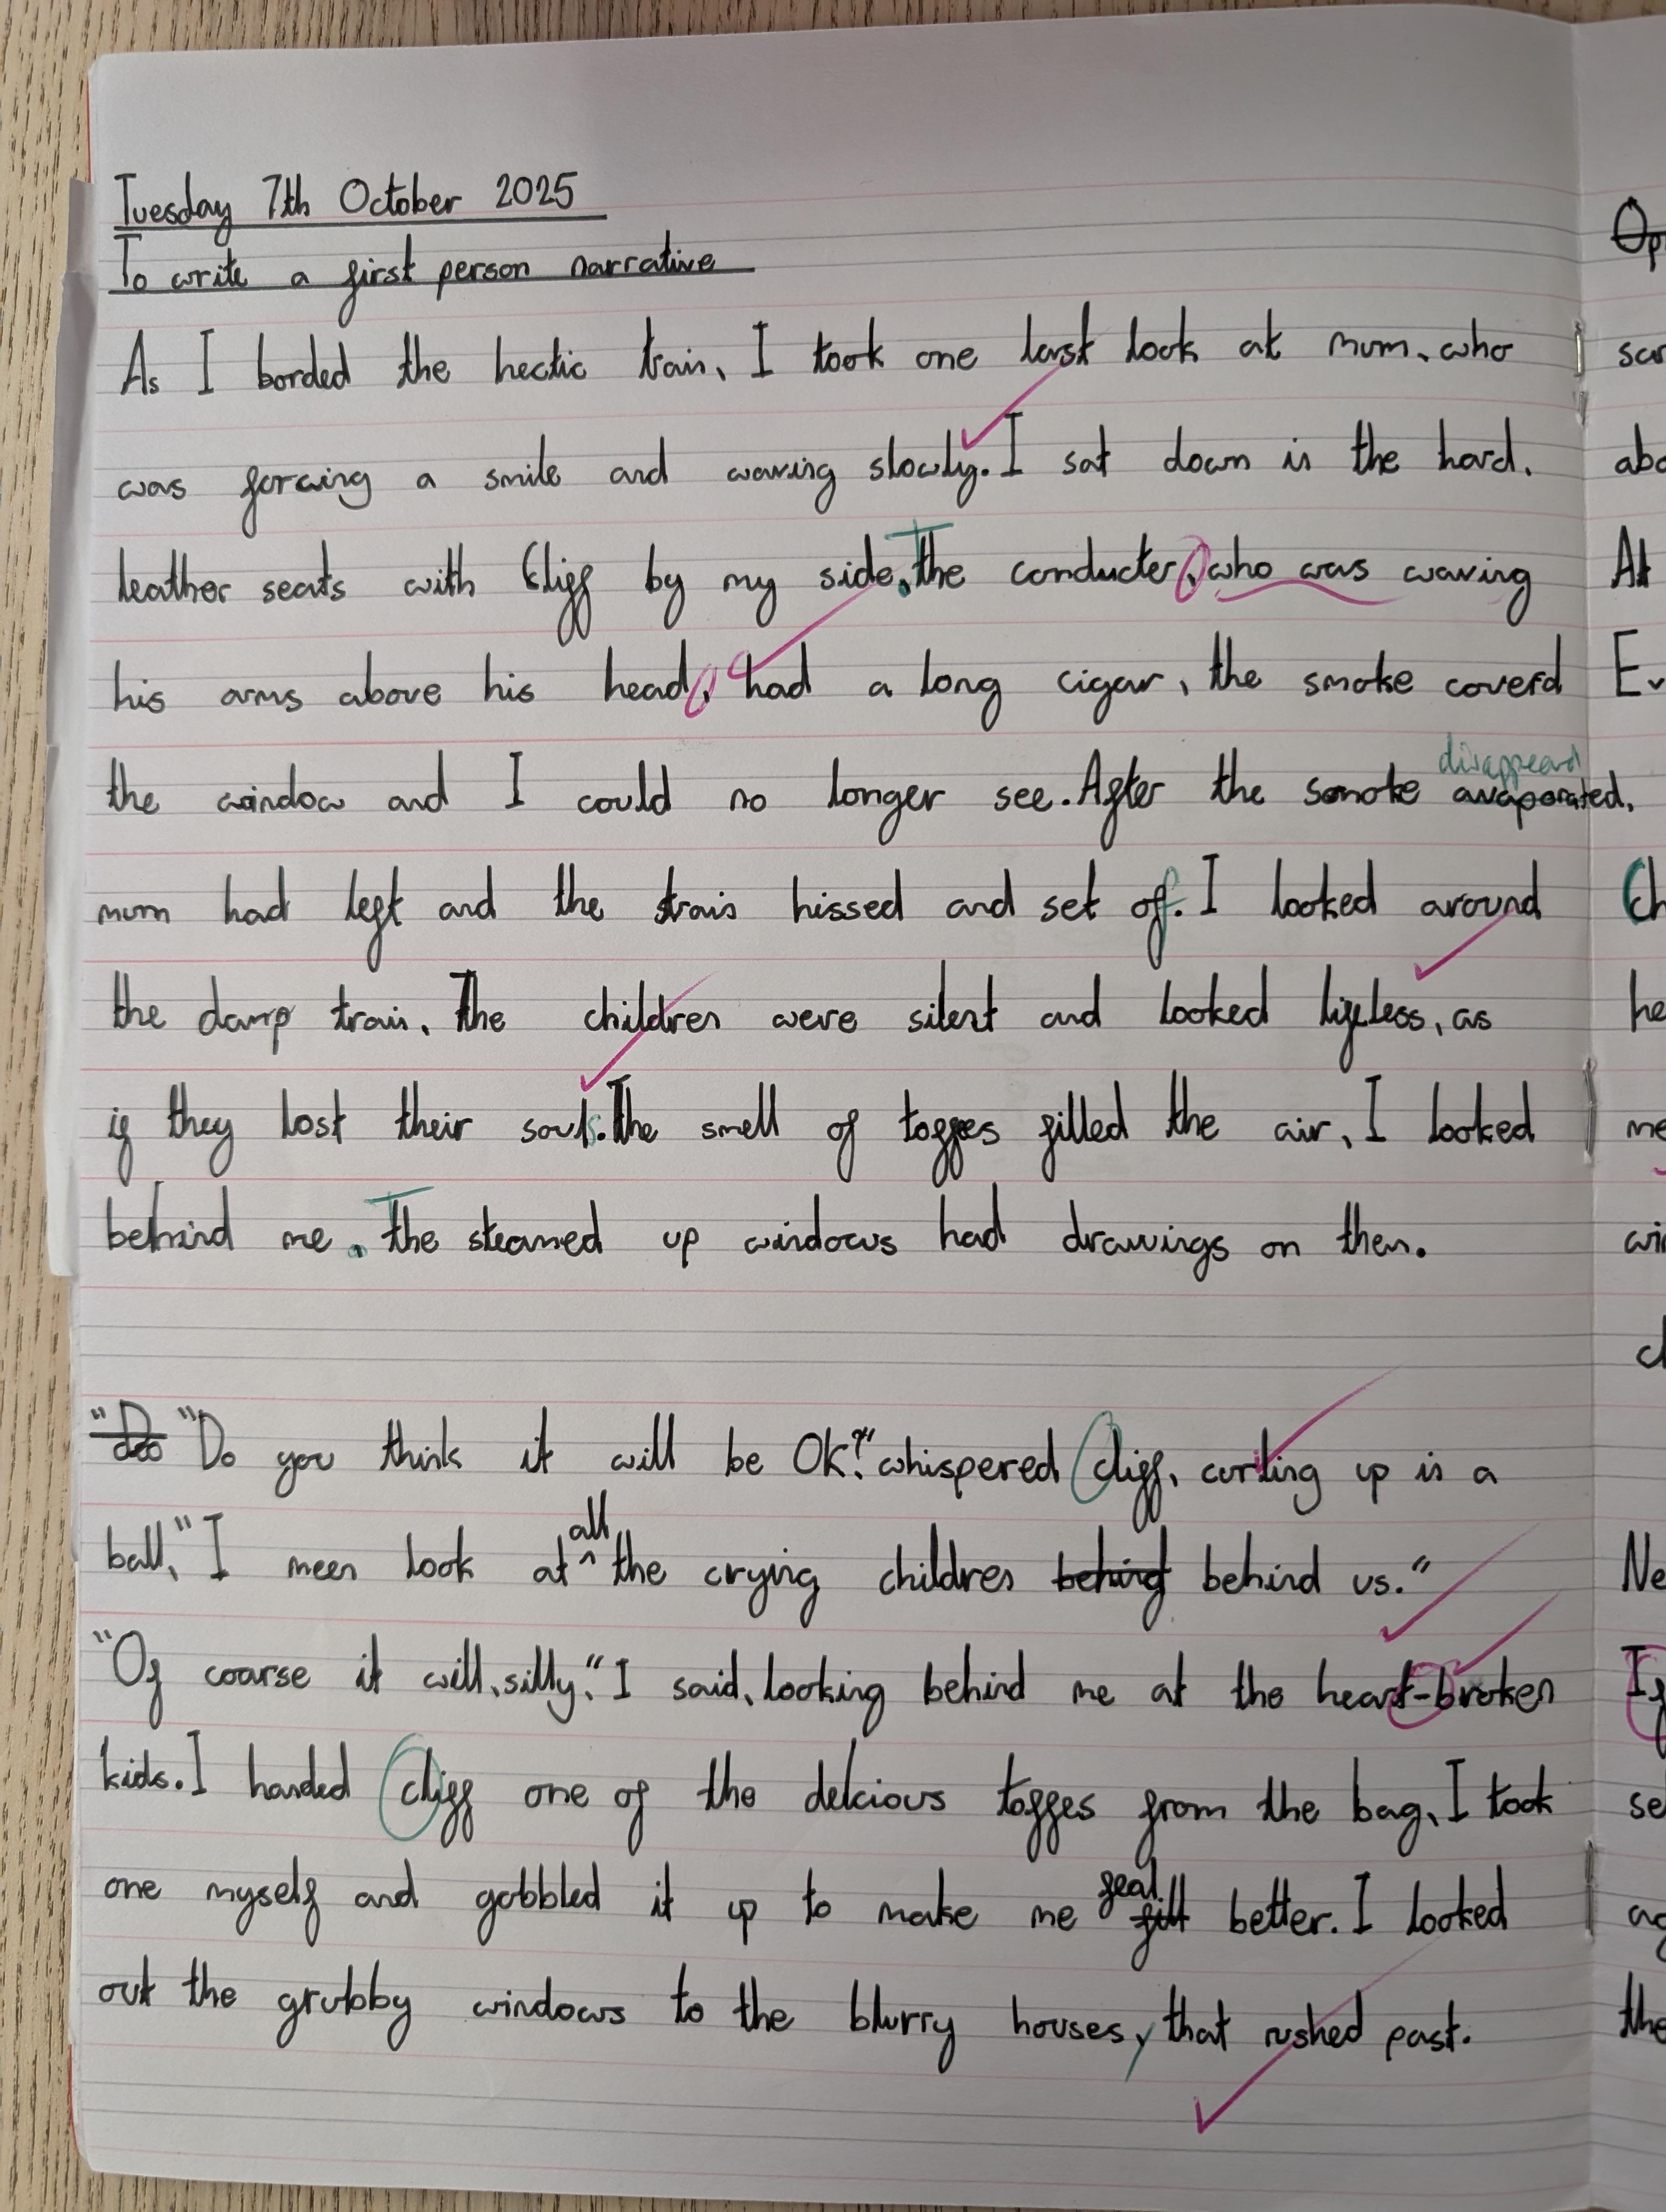 Tuesday 7th October 2025
To write a first person narrative
As I borded the hectic train, I took one last look at mum, who
was forcing a smile and waving slowly. I sat down in the hard,
leather seats with Cliff by my side. The conducter, who was waving
his arms above his head, had a long cigar, the smoke coverd
the window and I could no longer see. After the smoke disappeard avaporated,
mum had left and the train hissed and set off. I looked around
the damp train. The children were silent and looked lifeless, as
if they lost their souls. The smell of toffees filled the air, I looked
behind me. The steamed up windows had drawings on them.
"Do "Do you think it will be OK?" whispered Cliff, curling up in a
ball, "I meen look at all the crying children behind behind us."
"Of coarse it will, silly." I said, looking behind me at the heart-broken
kids. I handed Cliff one of the delcious toffees from the bag, I took
one myself and gobbled it up to make me feal fill better. I looked
out the grubby windows to the blurry houses, that rushed past.